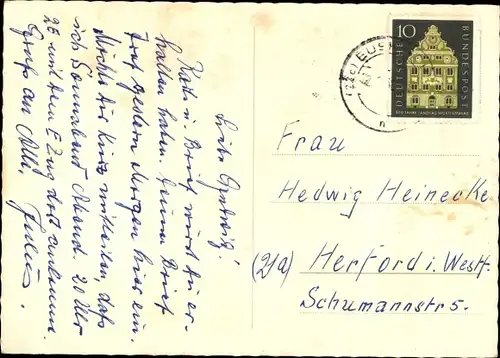 Liebe Hedwig!
Karte u. Brief wirst Du er-
halten haben. Deine Brief
traf gestern Morgen hier ein.
Möchte Dir kurz mitteilen, daß
ich Sonnabend Abend 20 Uhr
25 mit dem E Zug dort ankomme.
Gruß an Alle,
10
DEUTSCHE
BUNDESPOST
500 JAHRE LANDTAG WÜRTTEMBERG
Frau
Hedwig Heinecke
(21a) Herford i. Westf.
Schumannstr 5.